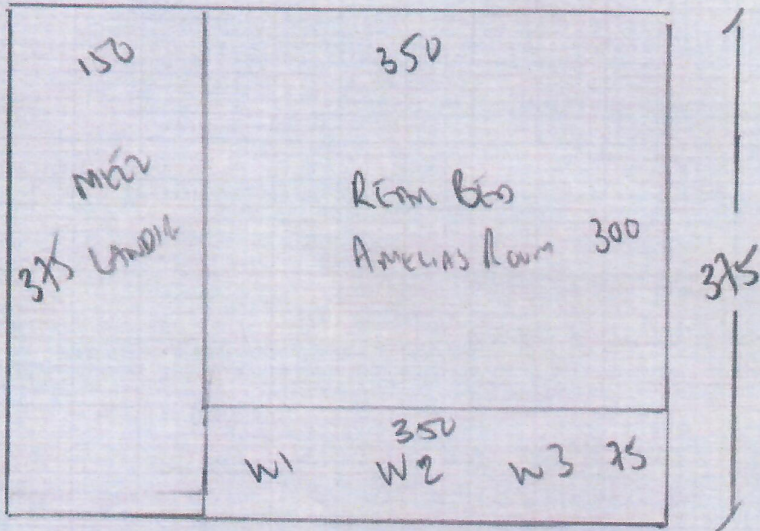 150
MEZZ
375 LANDIG
350
REAR BED
AMELIAS ROOM 300
375
350
W1 W2 W3 75